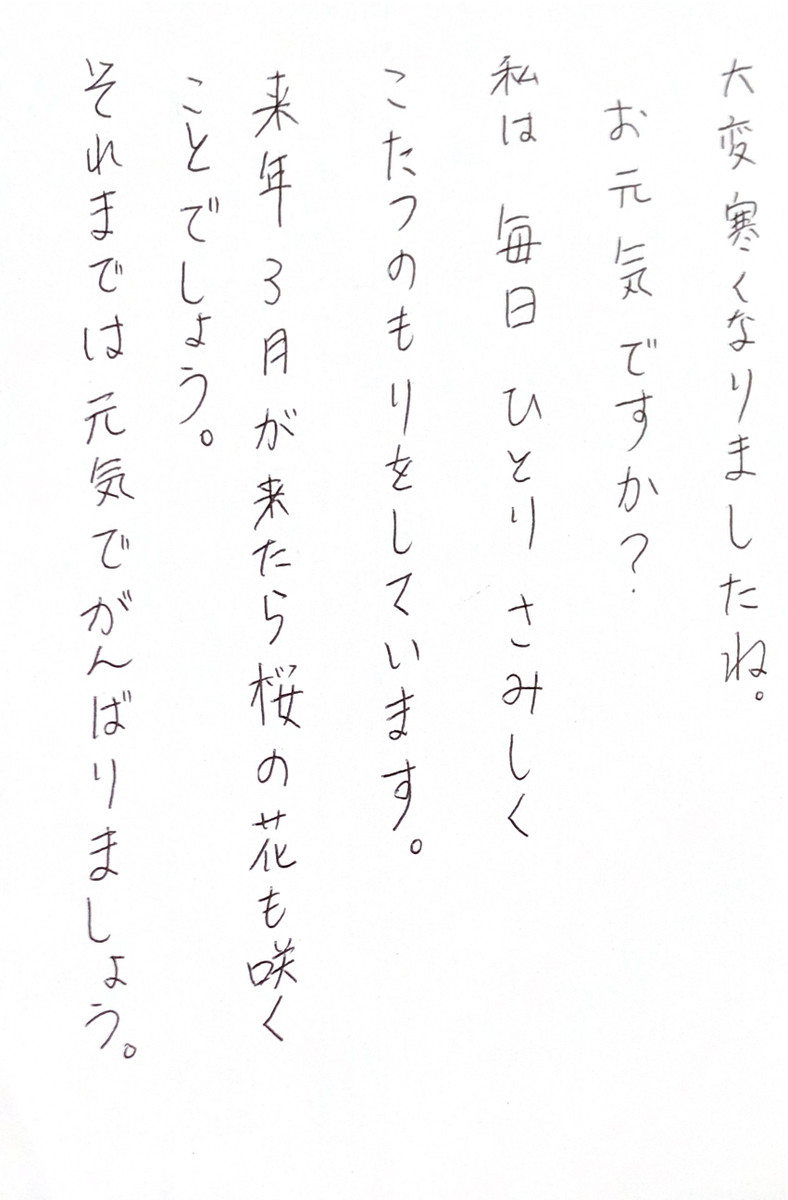 大変寒くなりましたね。
お元気ですか?
私は 毎日 ひとり さみしく
こたつのもりをしています。
来年3月が来たら桜の花も咲く
ことでしょう。
それまでは元気でがんばりましょう。